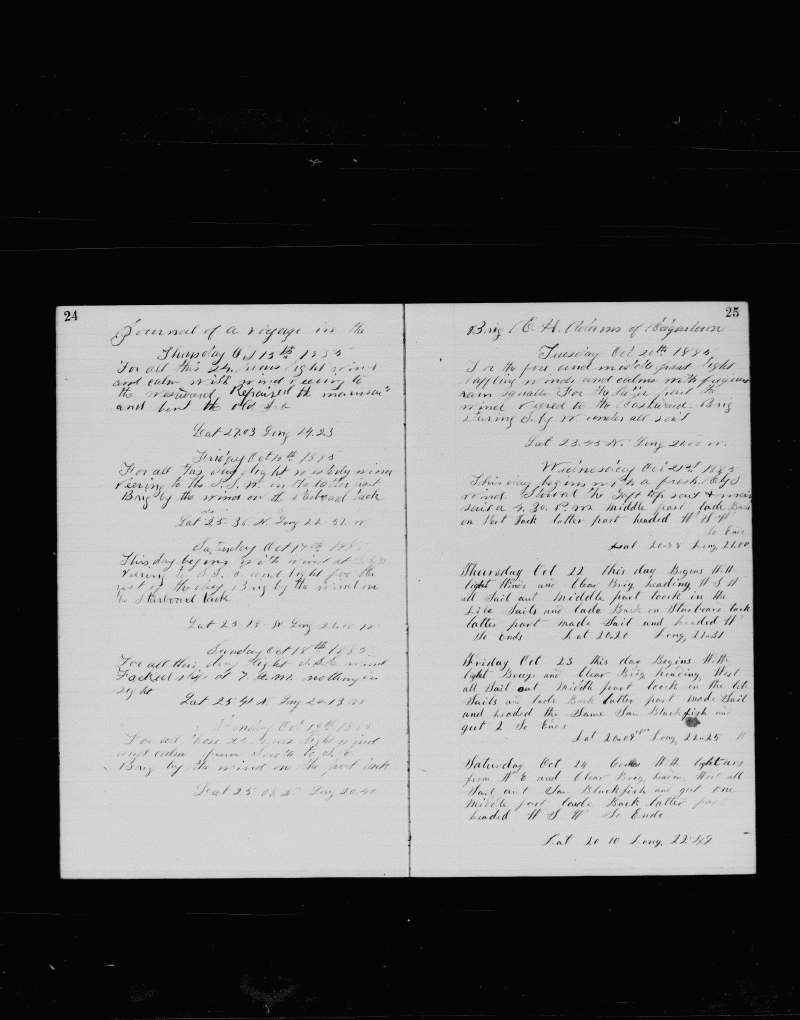 24
Journal of a voyage in the
Thursday Oct 15th 1885
For all this 24 hours light wind
and calm with wind veering to
the westward Repaired the mainsail
and bent the old
Lat 27.03 Long 24.23
Friday Oct 16th 1885
For all this day light westerly wind
veering to the S.S.W. in the latter part
Brig by the wind on the starboard tack
Lat 25.36 N. Long 22.51 W
Saturday Oct 17th 1885
This day begins with wind at
veering to S.S. and light for the
rest of the day Brig by the wind on
the Starboard Tack
Lat 25.18 N Long 21.00 W
Sunday Oct 18th 1885
For all this day light wind
Tacked ship at 7 a.m. nothing in
sight
Lat 25.41 N Long 20.13 W
Monday Oct 19th 1885
For all these 24 hours light wind
and calm from South to S.E.
Brig by the wind on the port tack
Lat 25.08 N Long 20.40
25
Brig E. H. Adams of Edgartown
Tuesday Oct 20th 1885
For the first and middle part light
baffling winds and calms with
rain squalls For the latter part the
wind veered to the Eastward. Brig
Steering S. by W under all sail
Lat 23.43 N. Long 21.00 W.
Wednesday Oct 21st 1885
This day begins with a fresh
wind. the top sail & main
sail at 4.30. P.m. Middle part Back
on Port Tack latter part headed W S W
So Ends
Lat 20-38 Long, 21.00
Thursday Oct 22 this day Begins With
light Winds and Clear Brig heading W S W
all Sail out Middle part took in the
Sails and Back on Starboard tack
latter part made Sail and headed W
So Ends Lat 20-20 Long, 21-31
Friday Oct 23 this day Begins With
light Breeze and Clear Brig heading West
all Sail out Middle part took in the
Sails and Back latter part made Sail
and headed the Same Saw Blackfish and
got 2 So Ends
Lat 20-09 Long, 22-25 W
Saturday Oct 24 With light airs
from N E and Clear Brig heading West all
Sail out Saw Blackfish and got one
Middle part Back latter part
headed W S W So Ends
Lat 20 10 Long, 22-49